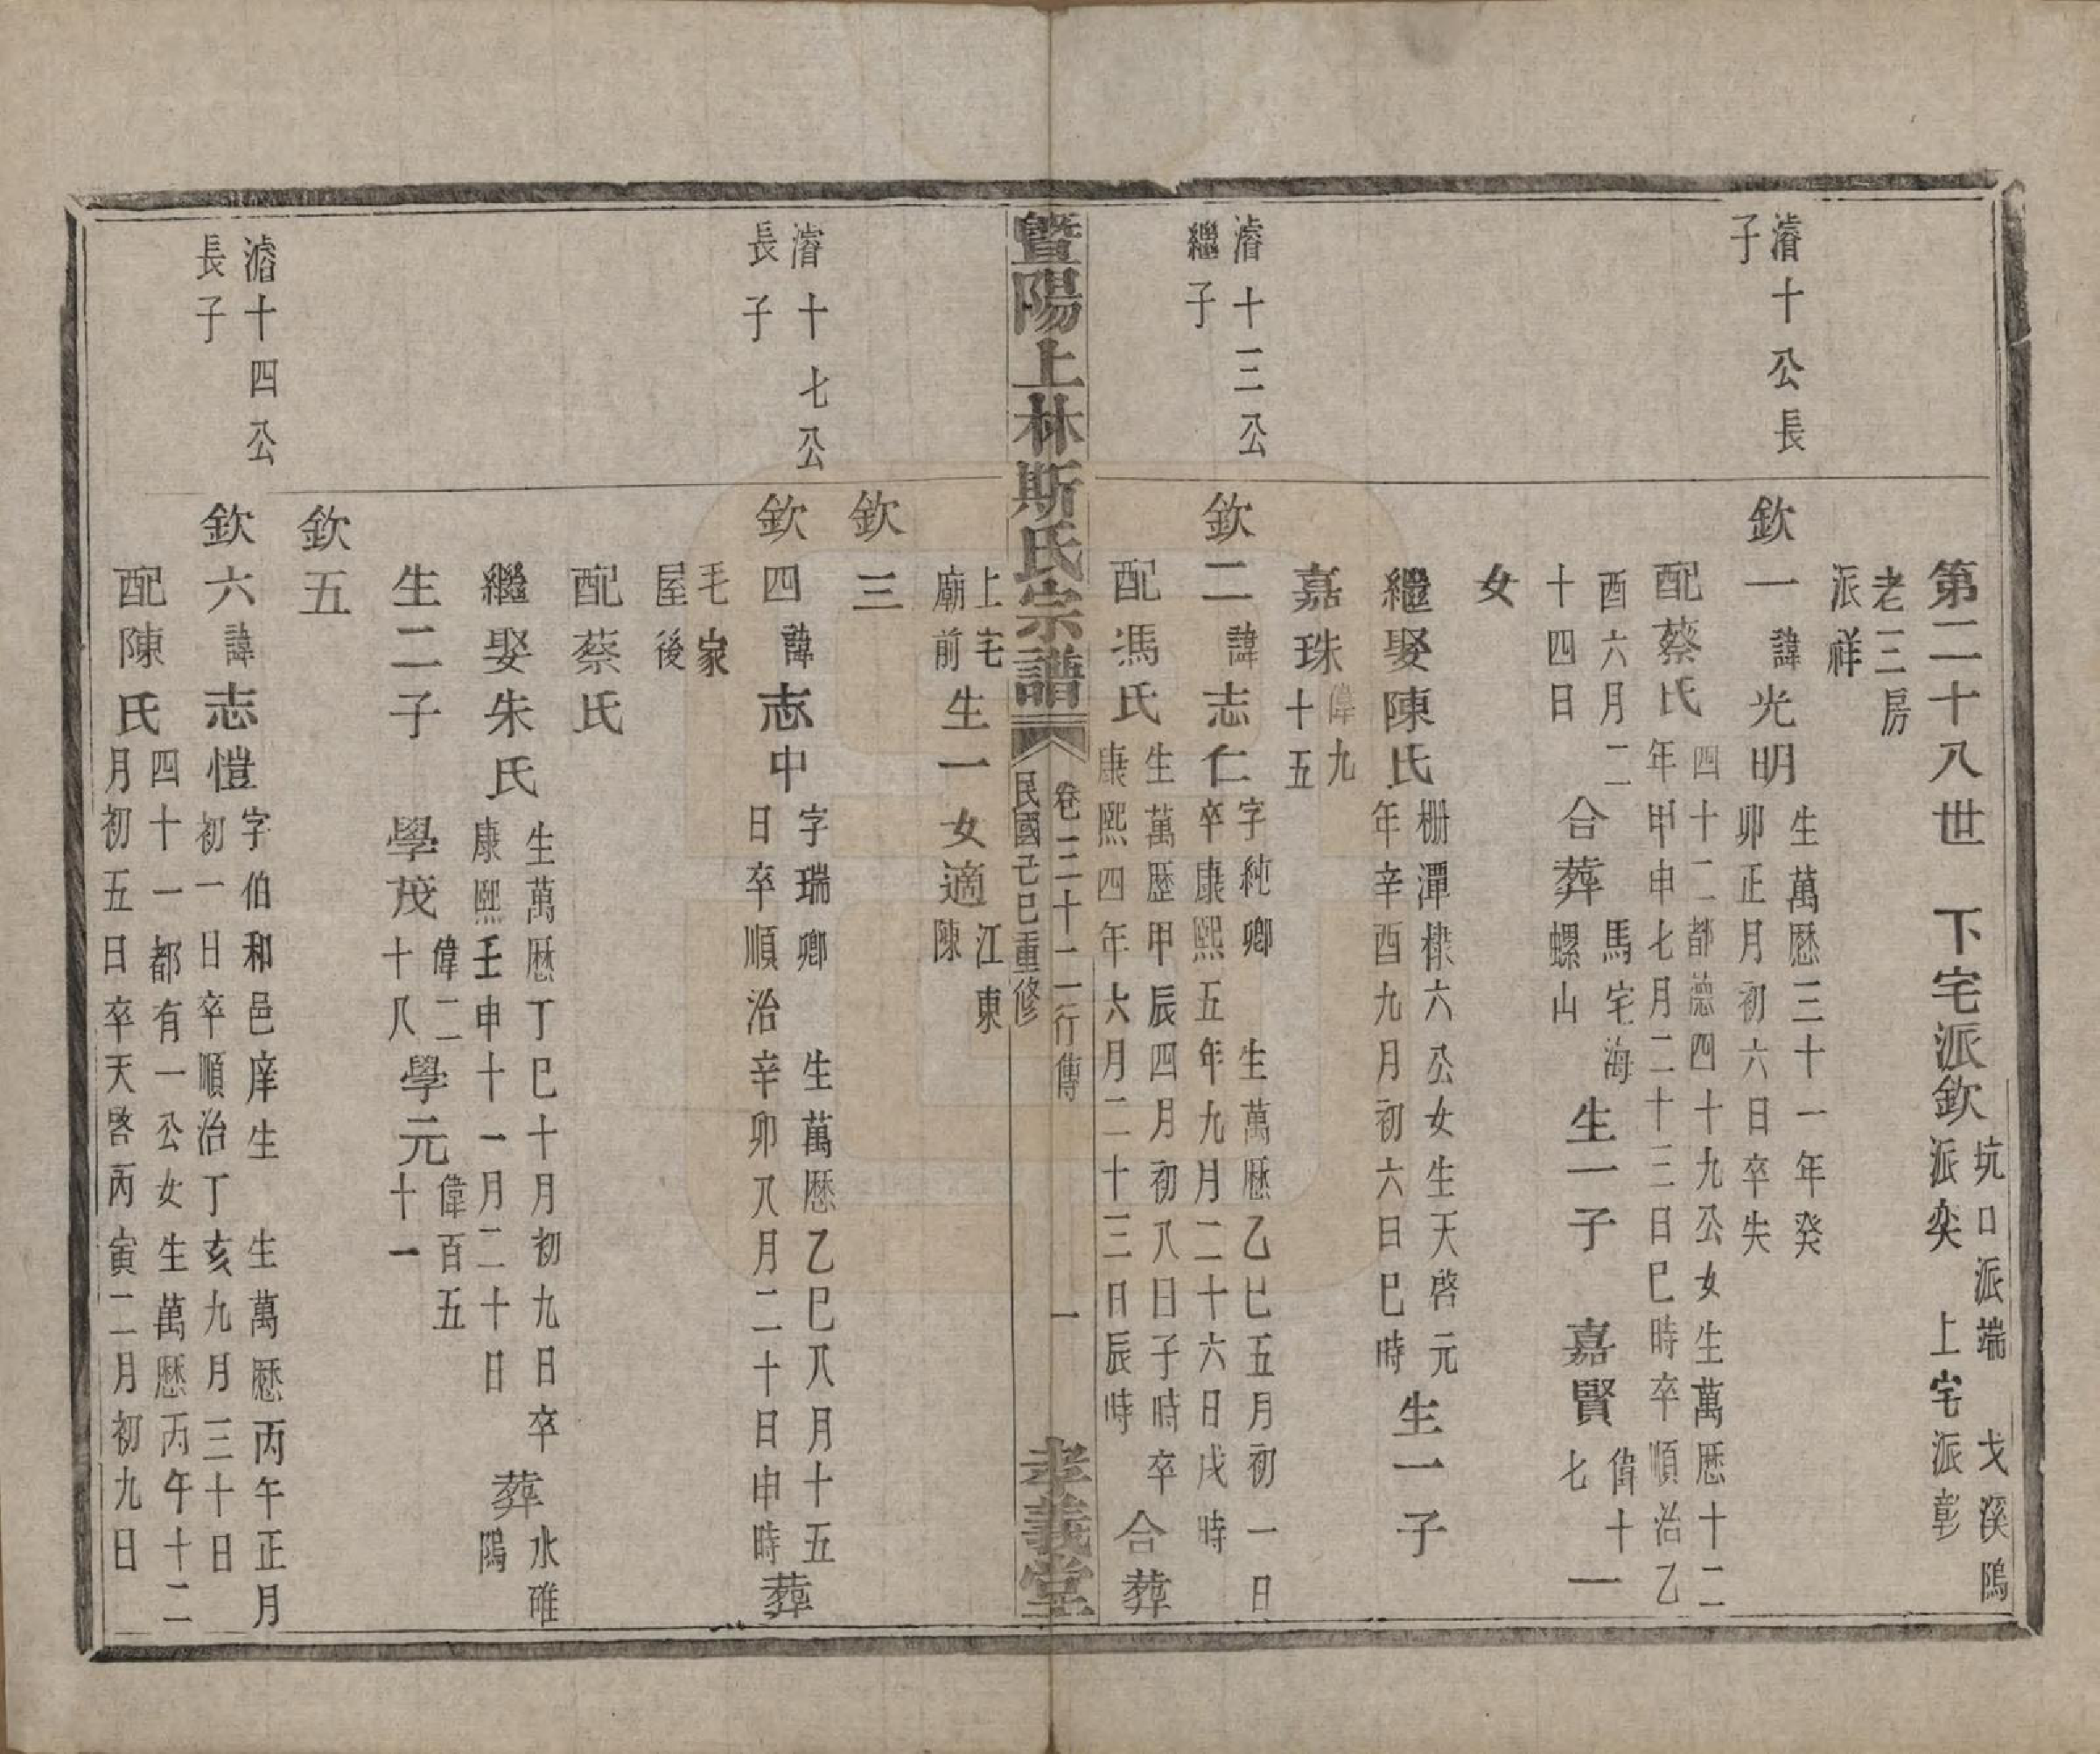 第二十八世　下宅派欽
坑口派端　戈溪隝
派奕　上宅派彰
老三房
派祥
濬十公長
子
欽一諱光明
生萬曆三十一年癸
卯正月初六日卒失
配蔡氏
四十二都德四十九公女生萬歷十二
年甲申七月二十三日巳時卒順治乙
酉六月二
十四日
合葬
馬宅海
螺山
生一子　嘉賢
偉十
七
一
女
繼娶陳氏
栅潭棣六公女生天啓元
年辛酉九月初六日巳時
生一子
嘉珠
偉九
十五
濬十三公
繼子
欽二諱志仁
字純卿　生萬曆乙巳五月初一日
卒康熙五年九月二十六日戌時
配馮氏
生萬歷甲辰四月初八日子時卒
康熙四年六月二十三日辰時
合葬
上宅
廟前
生一女適
江東
陳
暨陽上林斯氏宗譜
卷三十二行傳　一
民國己巳重修
孝義堂
欽三
濬十七公
長子
欽四諱志中
字瑞卿　生萬曆乙巳八月十五
日卒順治辛卯八月二十日申時
葬
毛家
屋後
配蔡氏
繼娶朱氏
生萬曆丁巳十月初九日卒
康熙壬申十一月二十日
葬
水碓
隝
生二子　學茂
偉二
十八
學元
偉百五
十一
欽五
濬十四公
長子
欽六諱志愷
字伯和邑庠生　生萬曆丙午正月
初一日卒順治丁亥九月三十日
配陳氏
四十一都有一公女生萬曆丙午十二
月初五日卒天啓丙寅二月初九日